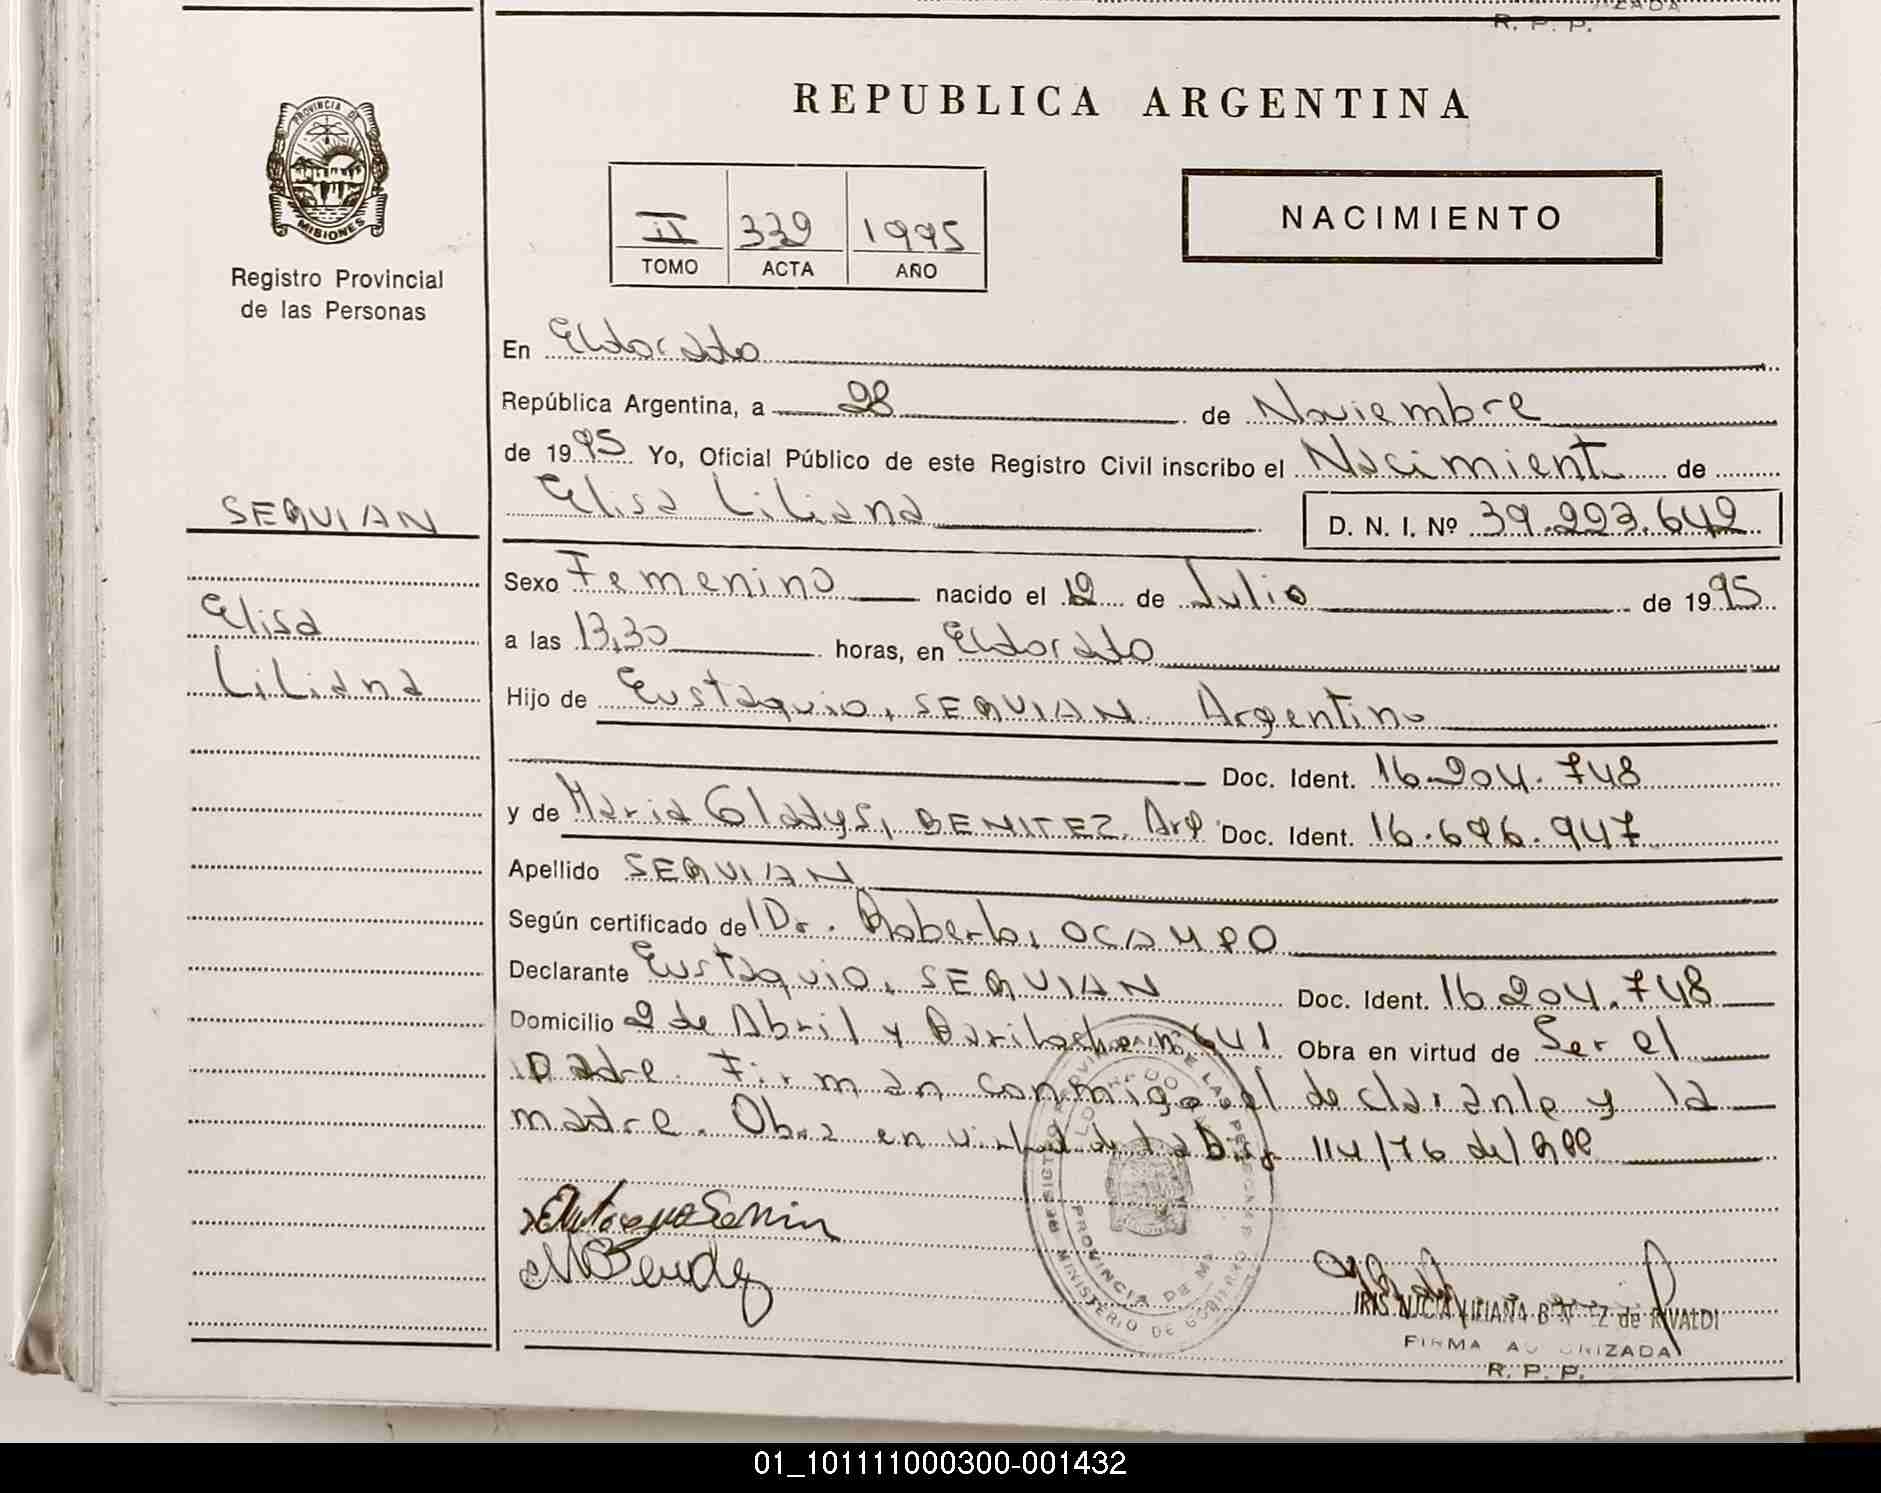 R. P. P.
REPUBLICA ARGENTINA
PROVINCIA DE
MISIONES
Registro Provincial
de las Personas
II 339 1995
TOMO ACTA AÑO
NACIMIENTO
En Eldorado
República Argentina, a 28 de Noviembre
de 1995 Yo, Oficial Público de este Registro Civil inscribo el Nacimiento de
Elisa Liliana D. N. I. Nº 39.223.642
SEQUIAN
Elisa
Liliana
Sexo Femenino nacido el 12 de Julio de 1995
a las 13,30 horas, en Eldorado
Hijo de Eustaquio, SEQUIAN Argentino
Doc. Ident. 16.204.748
y de Maria Gladys, BENITEZ, Arg. Doc. Ident. 16.696.947
Apellido SEQUIAN
Según certificado de Dr. Roberto, OCAMPO
Declarante Eustaquio, SEQUIAN Doc. Ident. 16.204.748
Domicilio 2 de Abril y Bariloche nº 641 Obra en virtud de Ser el
padre. Firman conmigo el declarante y la
madre. Obra en virtud de la Disp 114/76 del RPP
PROVINCIA DE
MINISTERIO DE GOBIERNO
IRIS LILIANA de RIVALDI
FIRMA AUTORIZADA
R. P. P.
01_101111000300-001432